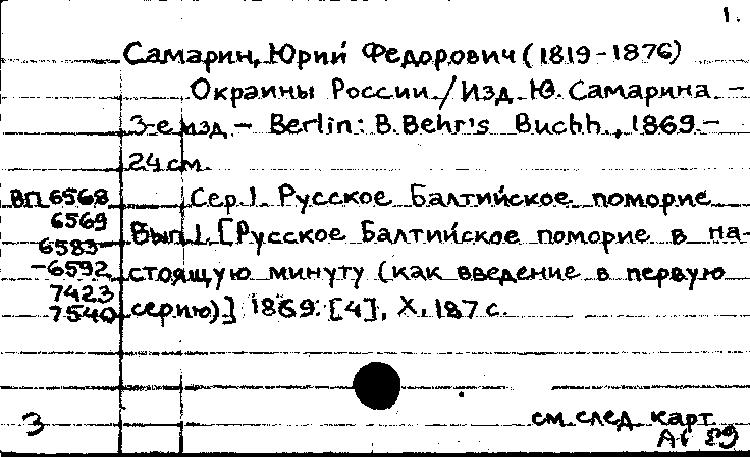 1.
Самарин, Юрий Федорович (1819-1876)
Окраины России. / Изд. Ю. Самарина. -
3-е изд. - Berlin: B. Behr's Buchh., 1869. -
24 см.
ВП 6568 Сер. 1. Русское Балтийское поморие
6569 Вып. 1. [Русское Балтийское поморие в на-
6583-
-6592 стоящую минуту (как введение в первую
7423
7540 серию)] 1869. [4], X, 187 с.
см. след. карт.
3 Аг 89